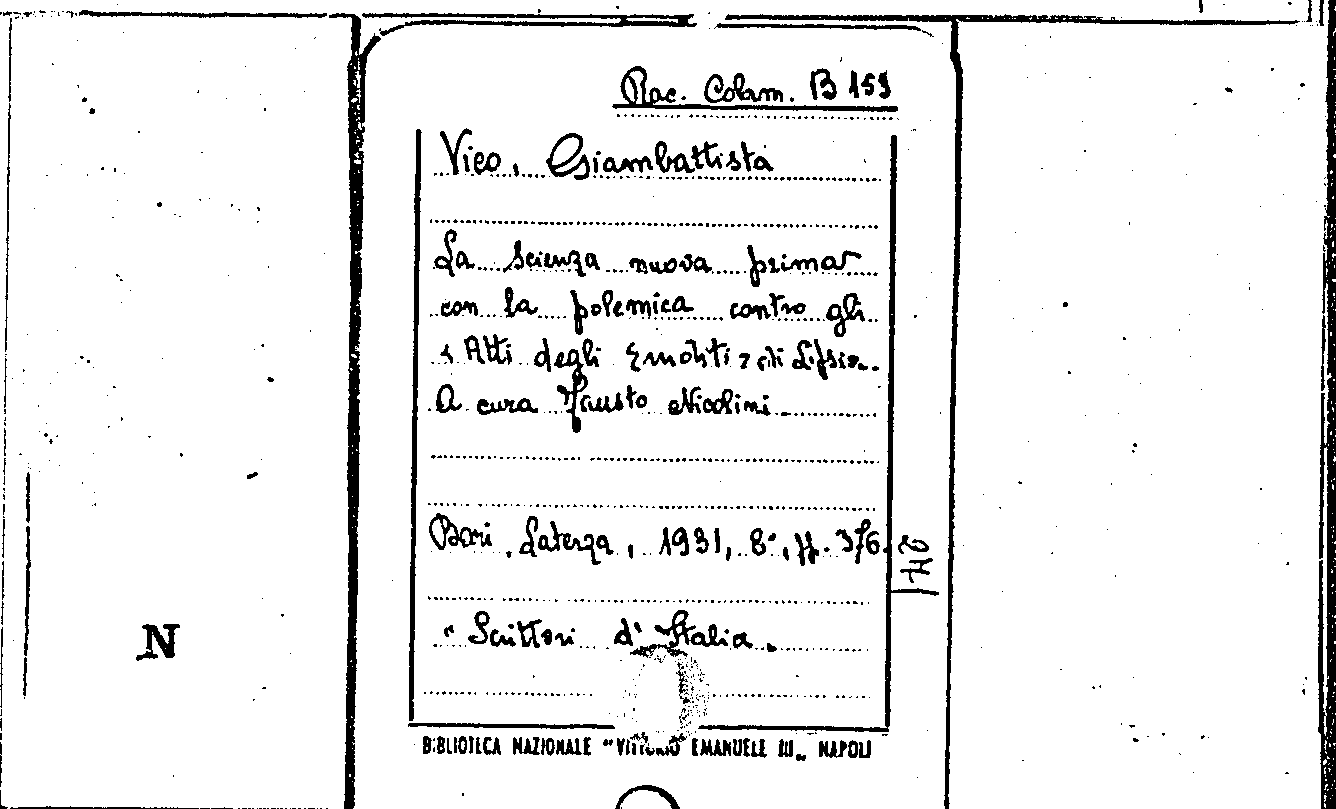 Rac. Colam. B 153
Vico, Giambattista
La scienza nuova prima
con la polemica contro gli
« Atti degli Eruditi » di Lipsia.
A cura Fausto Nicolini.
Bari, Laterza, 1931, 8°, pp. 376.
" Scrittori d'Italia.
N
BIBLIOTECA NAZIONALE "VITTORIO EMANUELE III„ NAPOLI